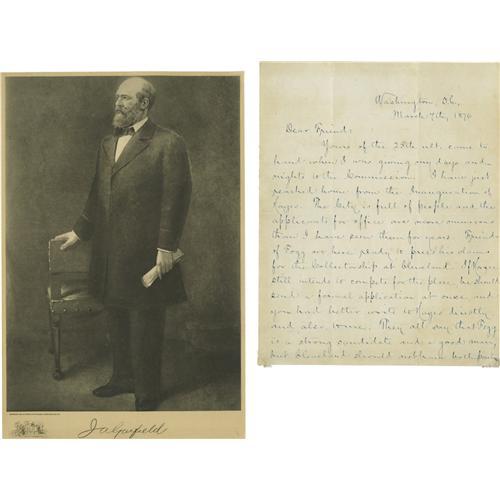 Washington, D.C.,
March 7th, 187
Dear Friend:
Yours of the 28th ult. came to
hand when I was giving my days and
nights to the Commission. I have just
reached home from the Inauguration of
Hayes. The City is full of people and the
applicants for office are more numerous
than I have seen them for years. Friends
of Fogg are here ready to press his claims
for the Collectorship at Cleveland. If
still intends to compete for the place, he should
send a formal application at once and
you had better write to directly
and also to me. They all say that Fogg
is a strong candidate and a good man,
but Cleveland should not have both
J A Garfield